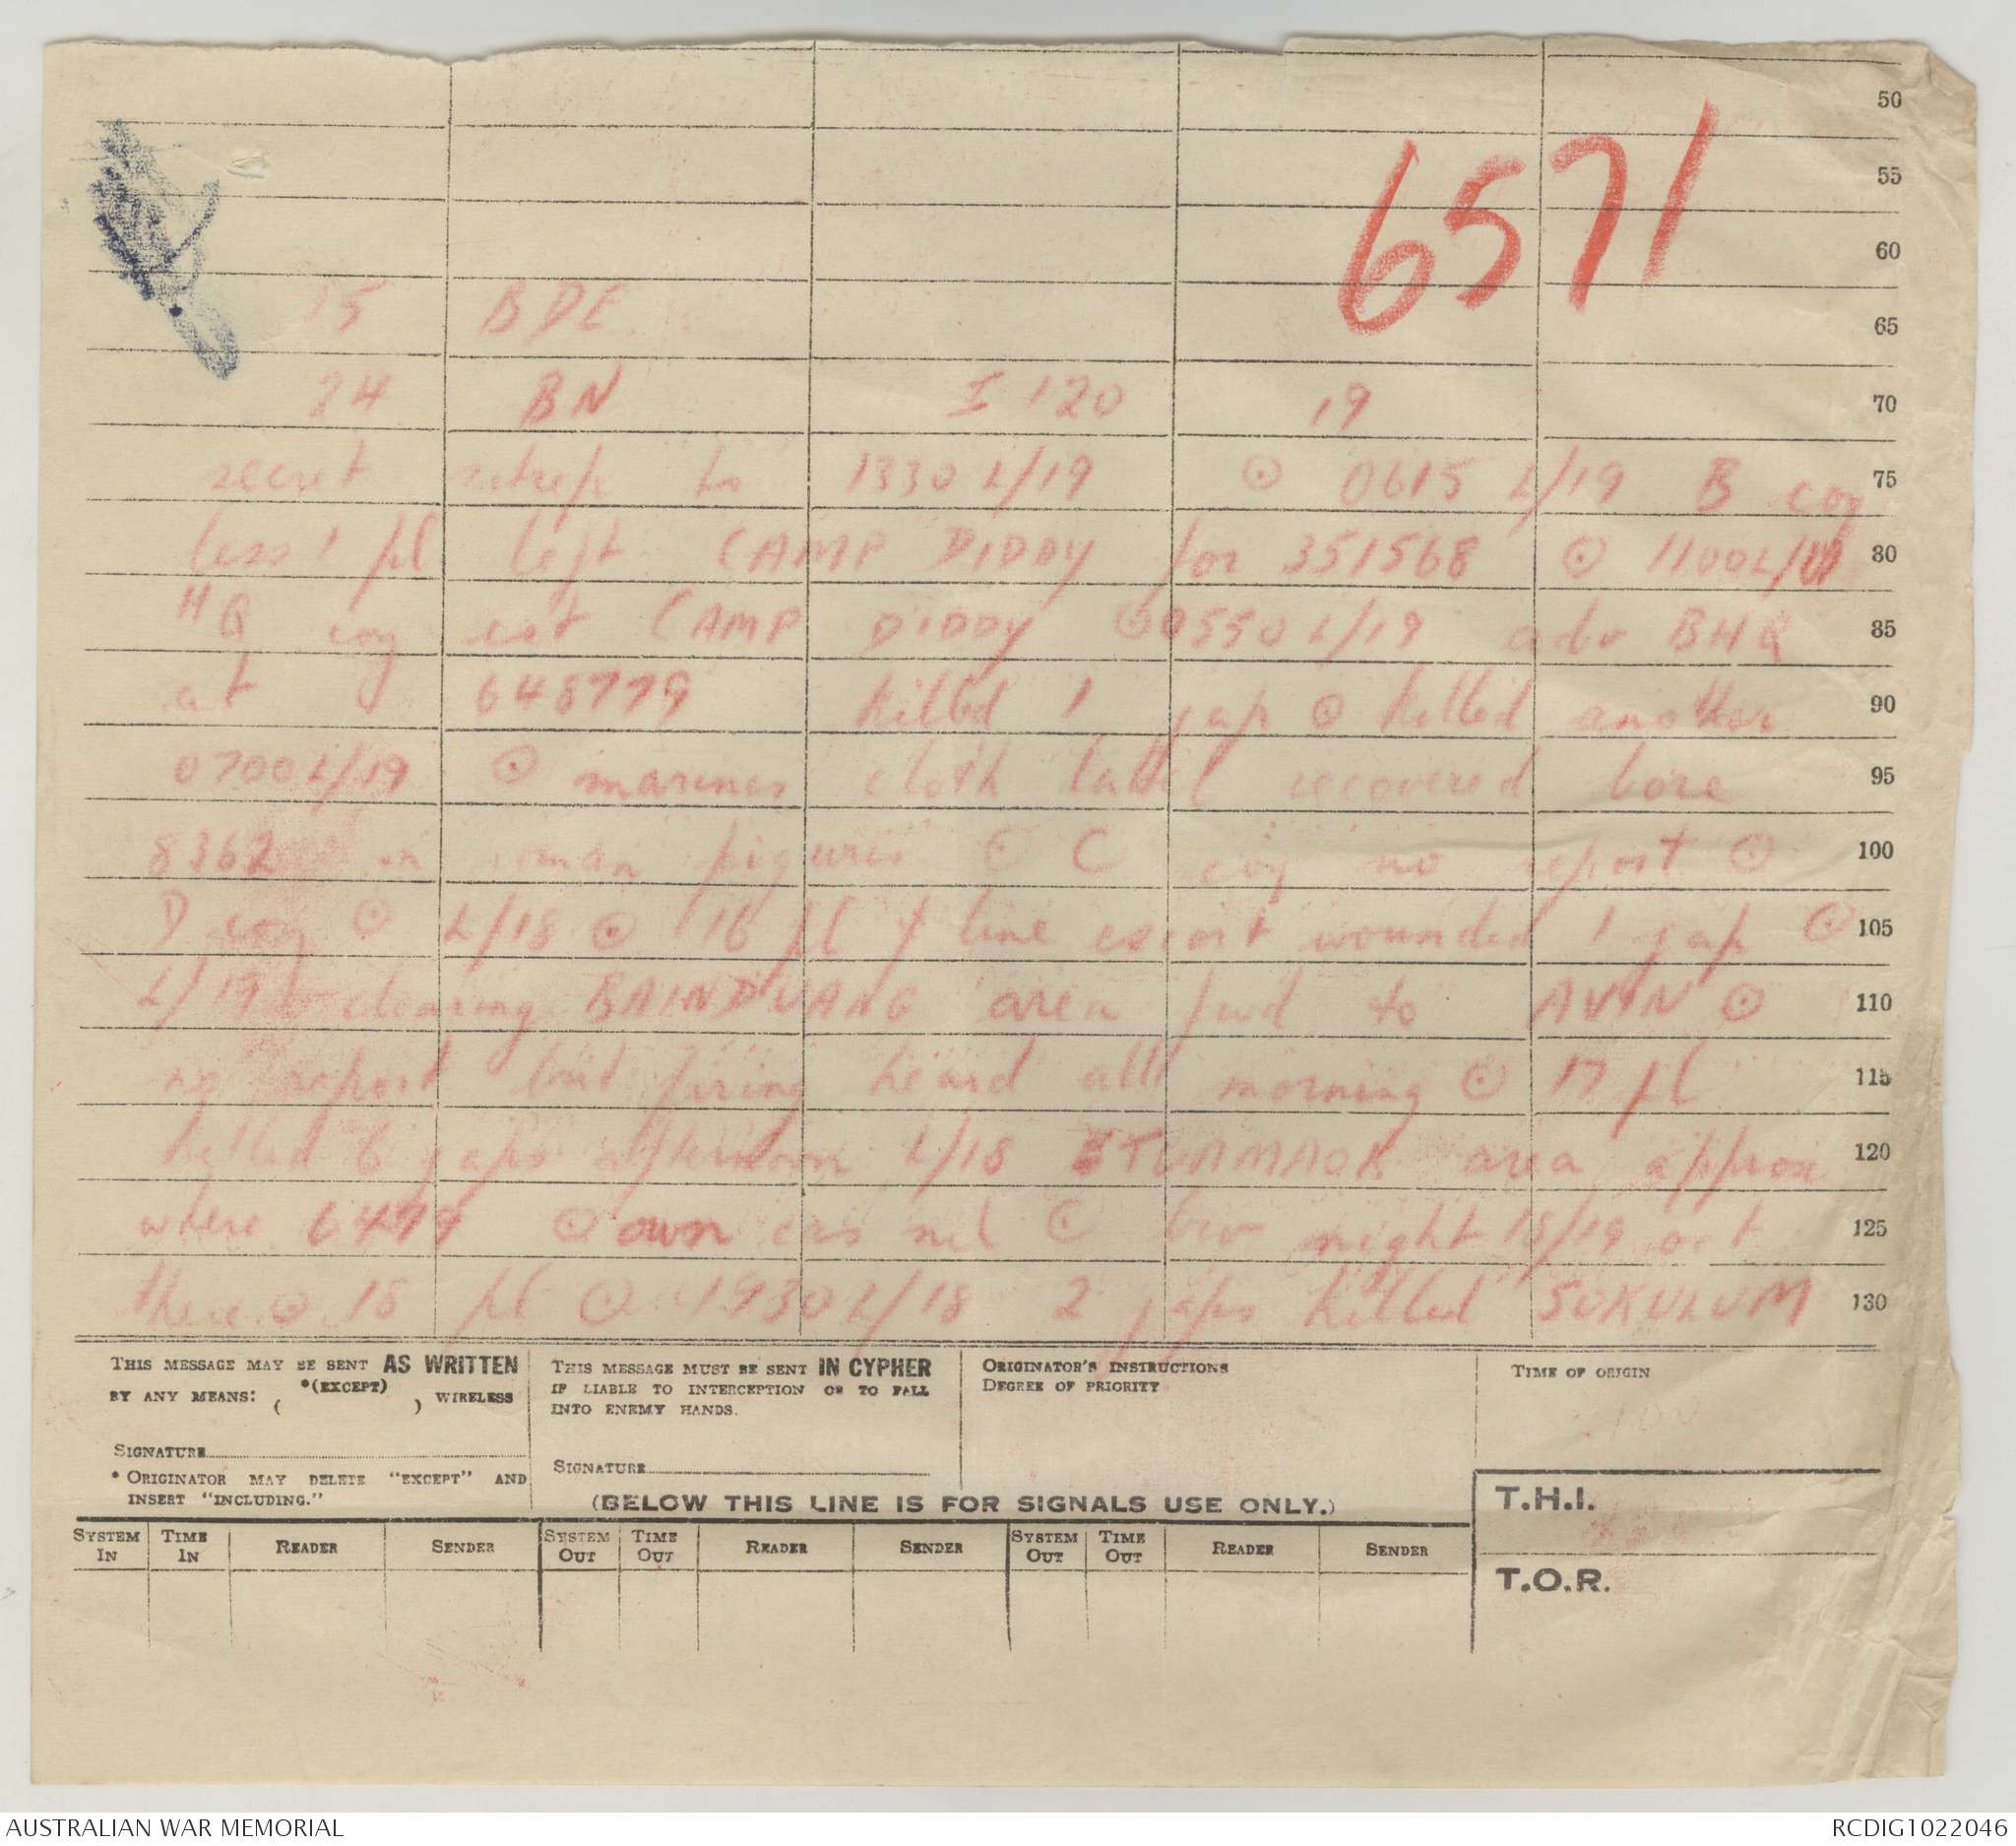 50
6571
55
60
15 BDE
65
24 BN I 120 19
70
secret sitrep to 1330 L/19 ⊙ 0615 L/19 B coy
75
less 1 pl left CAMP DIDDY for 351568 ⊙ 1100L/19
80
HQ coy est CAMP DIDDY ⊙ 0550 L/19 adv BHQ
85
at 648779 killed 1 jap ⊙ killed another
90
0700 L/19 ⊙ marines cloth label recovered bore
95
8362 in roman figures ⊙ C coy no report ⊙
100
D coy ⊙ L/18 ⊙ 16 pl line escort wounded 1 jap ⊙
105
L/19 clearing BAINDUANG area fwd to AVIN ⊙
110
no report but firing heard all morning ⊙ 17 pl
115
killed 6 japs afternoon L/18 area approx
120
where 6479 ⊙ own cas nil ⊙ biv night 18/19 oct
125
there ⊙ 18 pl ⊙ 1930 L/18 2 japs killed SOKULUM
130
THIS MESSAGE MAY BE SENT AS WRITTEN
BY ANY MEANS: ( *(EXCEPT) ) WIRELESS
SIGNATURE
* ORIGINATOR MAY DELETE "EXCEPT" AND
INSERT "INCLUDING."
THIS MESSAGE MUST BE SENT IN CYPHER
IF LIABLE TO INTERCEPTION OR TO FALL
INTO ENEMY HANDS.
SIGNATURE
ORIGINATOR'S INSTRUCTIONS
DEGREE OF PRIORITY
TIME OF ORIGIN
(BELOW THIS LINE IS FOR SIGNALS USE ONLY.)
T.H.I.
T.O.R.
SYSTEM IN TIME IN READER SENDER SYSTEM OUT TIME OUT READER SENDER SYSTEM OUT TIME OUT READER SENDER
AUSTRALIAN WAR MEMORIAL RCDIG1022046